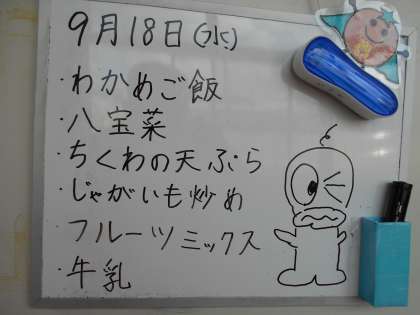 9月18日(水)
・わかめご飯
・八宝菜
・ちくわの天ぷら
・じゃがいも炒め
・フルーツミックス
・牛乳